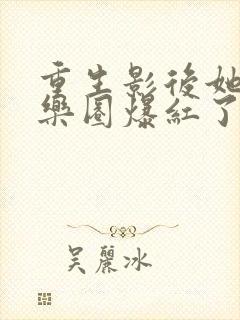 重生影後她
樂圈爆紅了
吳麗冰